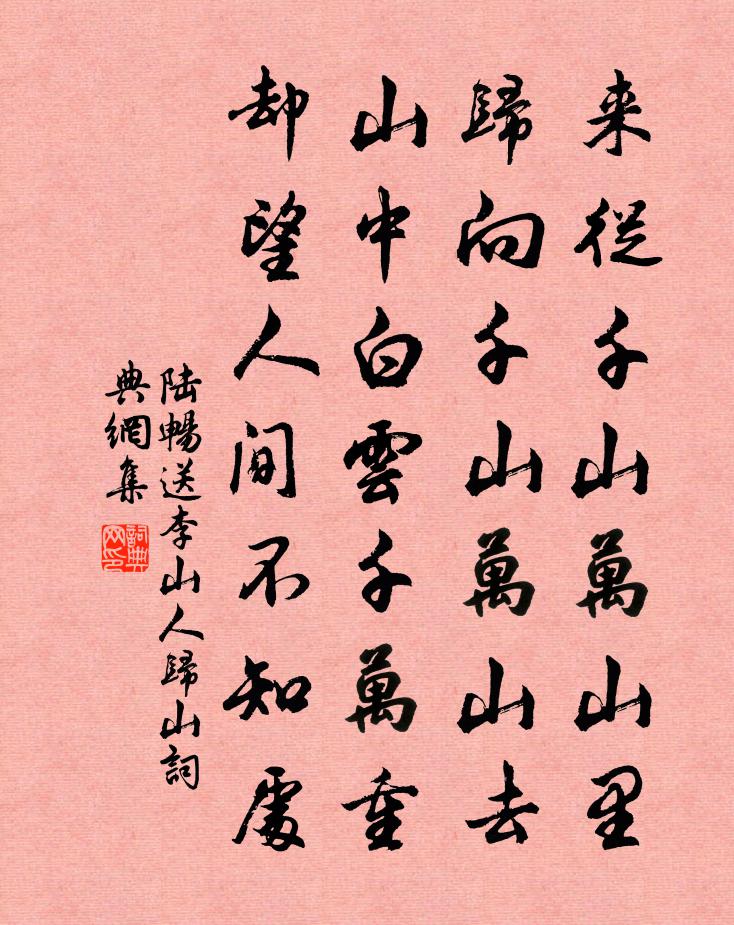 来從千山萬山里
歸向千山萬山去
山中白雲千萬重
却望人間不知處
陆暢送李山人歸山詞
典網集
詞典网印